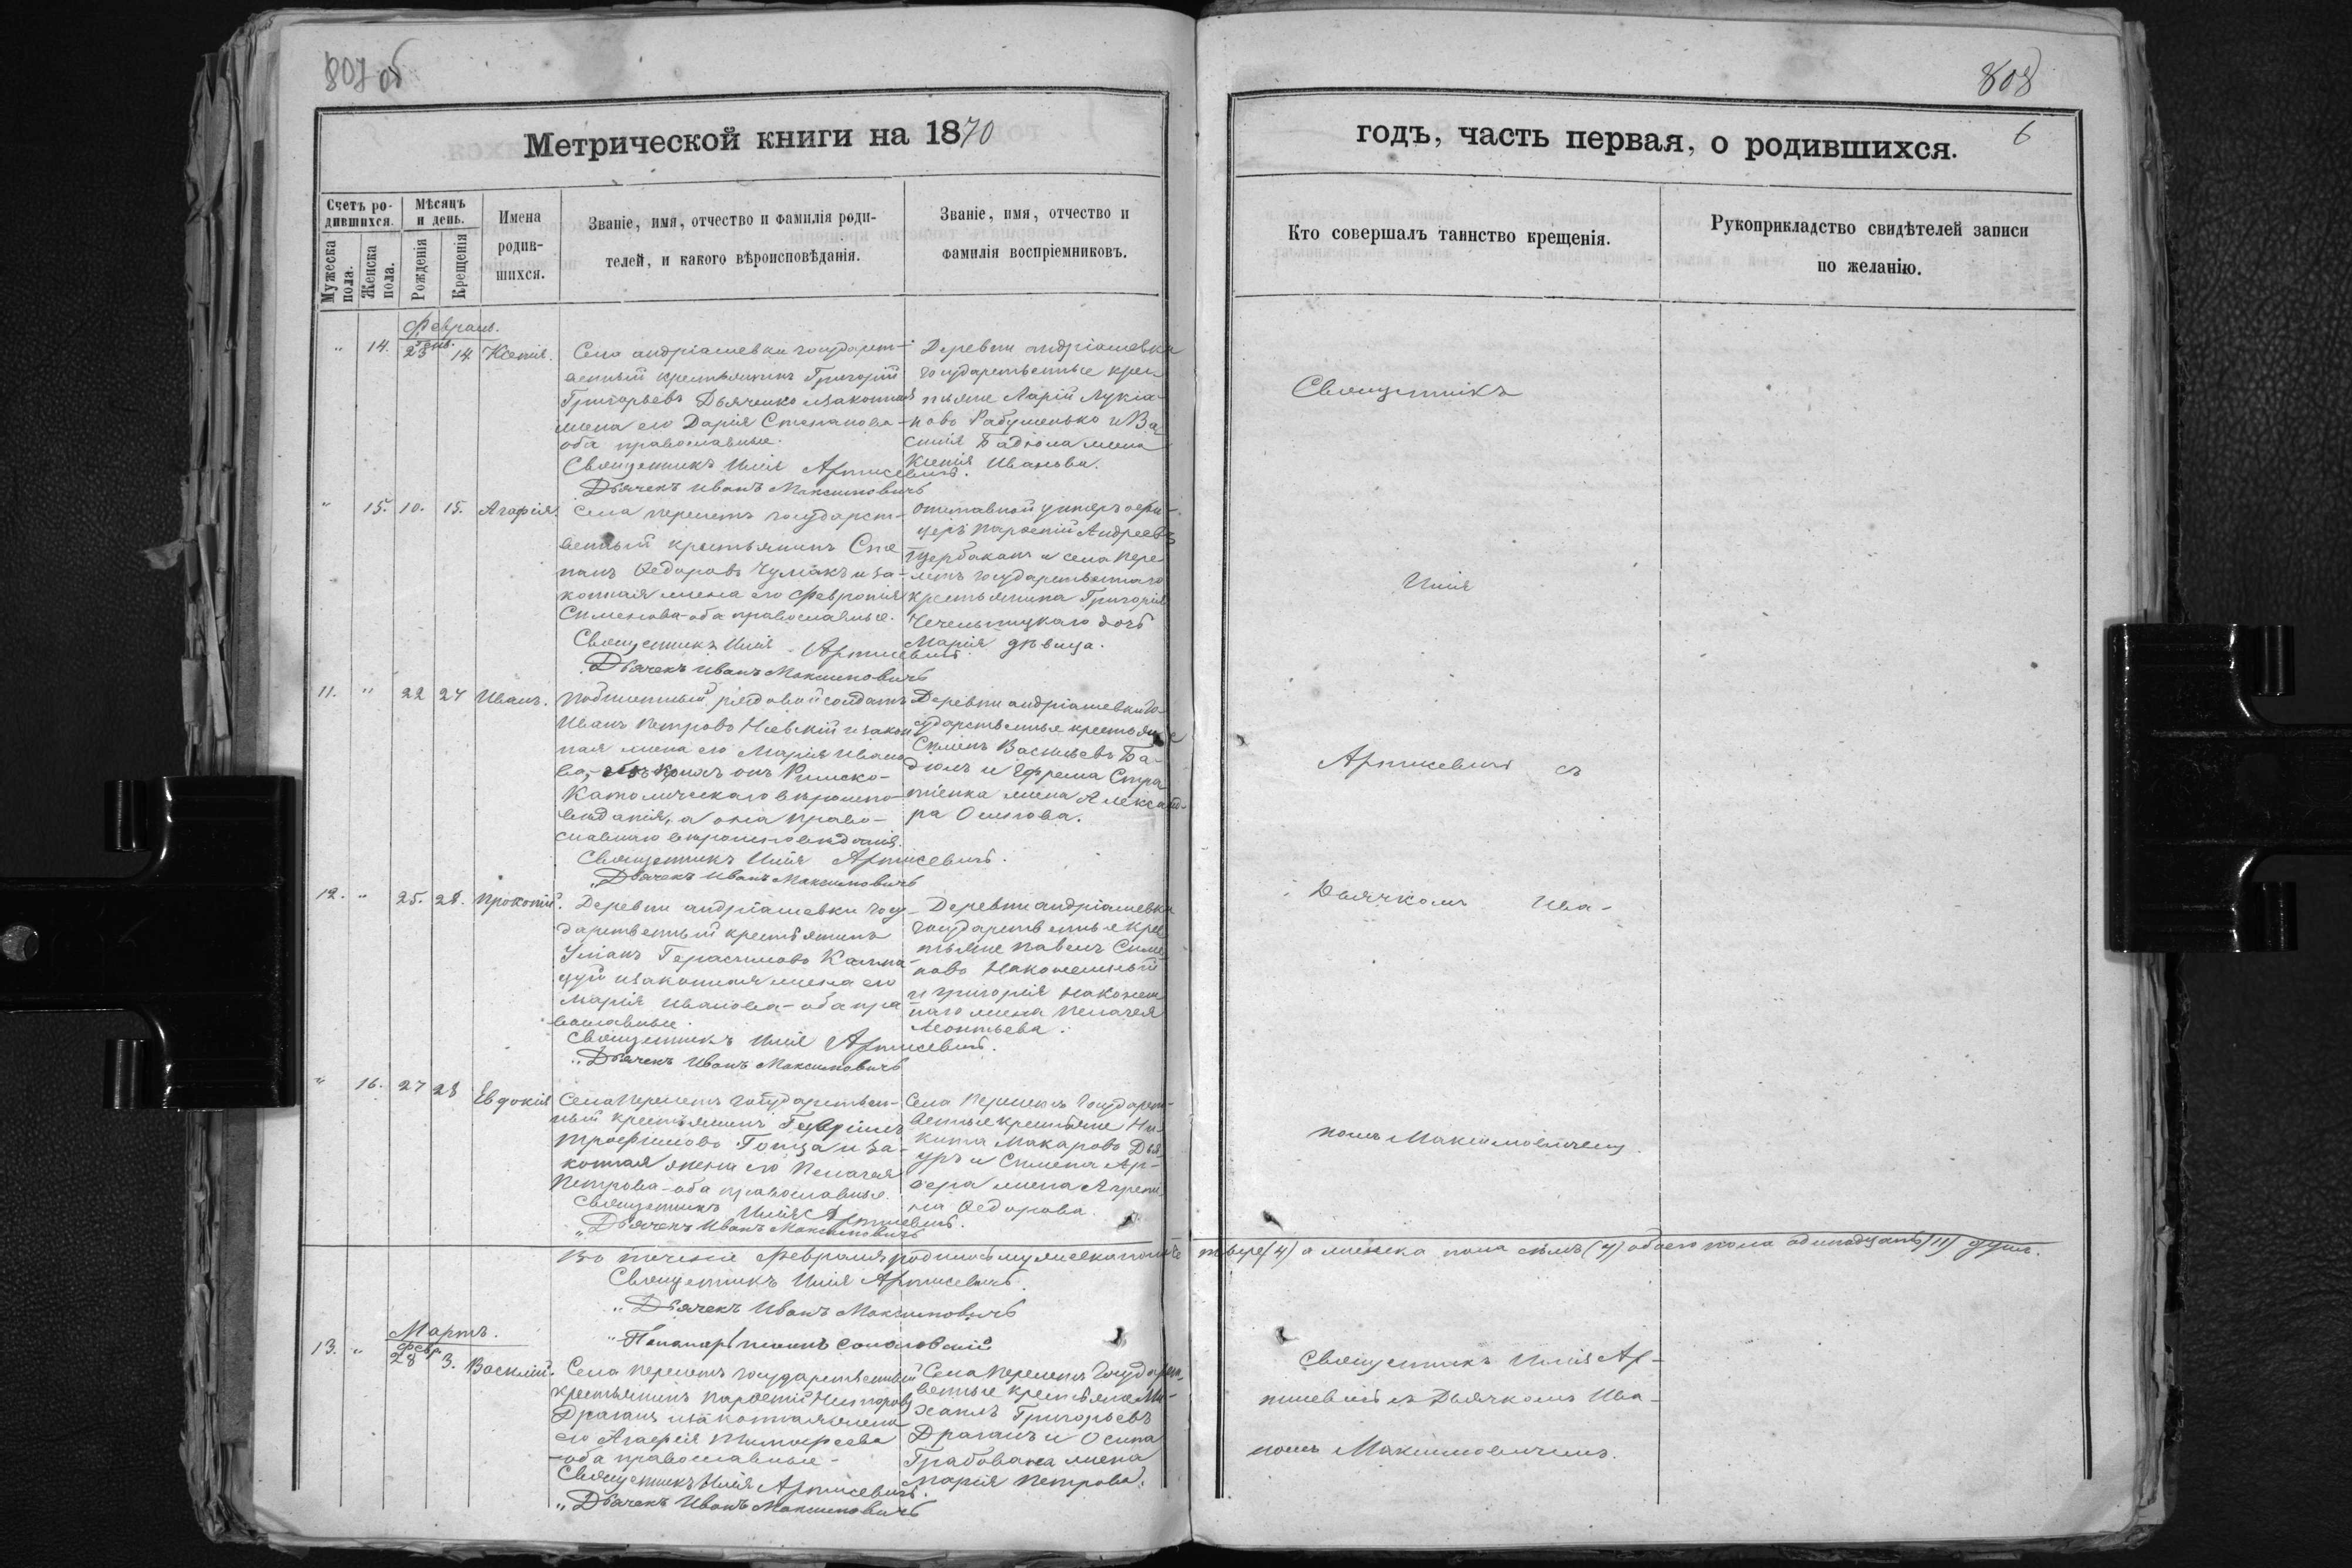 807 об
808
6
Метрической книги на 1870
годъ, часть первая, о родившихся.
Счетъ ро-
дившихся.
Мѣсяцъ
и день.
Имена
родив-
шихся.
Званіе, имя, отчество и фамилія роди-
телей, и какого вѣроисповѣданія.
Званіе, имя, отчество и
фамилія воспріемниковъ.
Кто совершалъ таинство крещенія.
Рукоприкладство свидѣтелей записи
по желанію.
Мужеска
пола.
Женска
пола.
Рожденія
Крещенія
Февраль.
" 14. 23 янв. 14 Ксенія.
Села андріашевки государст-
венный крестьянинъ Григорій
Григорьевъ Дьяченко и законная
жена его Дарія Степанова
оба православные.
Священникъ Илія Артисевичъ.
Дьячекъ Иванъ Максимовичъ
Деревни андріашевки
государственные крес
тьяне Ларій Лукіа-
новъ и Ва
силія Бадюла жена
Ксенія Иванова.
" 15. 10. 15. Агафія.
Села перелетъ государст-
венный крестьянинъ Сте
панъ Ѳедоровъ Чумакъ и за-
конная жена его Февронія
Сименова оба православные.
Священникъ Илія Артисевичъ.
Дьячекъ Иванъ Максимовичъ
отставной унтеръ офи-
церъ Парфеній Андреевъ
Щербакаш и села Пере
летъ государственнаго
крестьянина Григорія
Чечельницкаго дочь
Марія дѣвица.
11. " 22 24 Иванъ.
рядовой солдатъ
Иванъ Петровъ Ніевскій и закон
ная жена его Марія Ивано
ва, онъ Римско-
Католическаго вѣроиспо-
вѣданія, а она право-
славнаго вѣроисповѣданія.
Священникъ Илія Артисевичъ.
"Дьячекъ Иванъ Максимовичъ
Деревни андріашевки го-
сударственные крестьяне
Сименъ Васильевъ Ба-
дюлъ и Ефрема Стра
тіенка жена Александ-
ра Осипова.
12. " 25. 28. Прокопій.
Деревни андріашевки госу-
дарственный крестьянинъ
Уліанъ Герасимовъ Калма-
цуй и законная жена его
Марія Иванова - оба пра
вославные.
Священникъ Илія Артисевичъ.
"Дьячекъ Иванъ Максимовичъ
Деревни андріашевки
государственные крес
тьяне Павелъ Симе
новъ Наконешный
и Григорія Наконеш
наго жена Пелагея
Леонтьева.
" 16. 27 28 Евдокія
Села Перелетъ государствен-
ный крестьянинъ Гавріилъ
Трофимовъ Гонца и за-
конная жена его Пелагея
Петрова - оба православные.
Священникъ Илія Артисевичъ.
"Дьячекъ Иванъ Максимовичъ
Села Перелетъ государст-
венные крестьяне Ни-
кита Макаровъ Дья
уръ и Симена Ар-
фера жена Агрепи
на Ѳедорова.
Во теченіе Февраля родилось мужеска пола че
твере (4) а женска пола семъ (7) обоего пола одинадцать (11) душъ.
Священникъ Илія Артисевичъ.
"Дьячекъ Иванъ Максимовичъ
"Пономарь
Мартъ.
13. " февр. 28 3. Василій.
Села Перелетъ государственный
крестьянинъ Парфеній Нестеровъ
Драганъ и законная жена
его Агафія Тимофеева
- оба православные -
Священникъ Илія Артисевичъ.
"Дьячекъ Иванъ Максимовичъ
Села Перелетъ государст-
венные крестьяне Ми-
хаилъ Григорьевъ
Драганъ и Осипа
Грабована жена
Марія Петрова.
Священникъ
Илія
Артисевичъ съ
Дьячкомъ Ива-
номъ Максимовичемъ.
Священникъ Илія Ар-
тисевичъ съ Дьячкомъ Ива-
номъ Максимовичемъ.